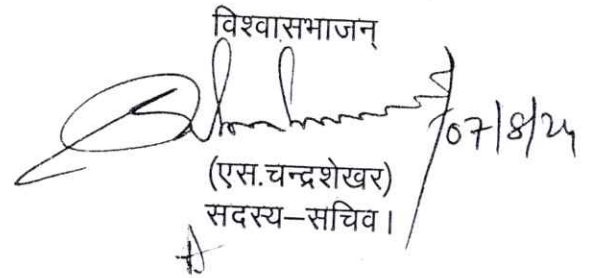 विश्वासभाजन्
07/8/24
(एस.चन्द्रशेखर)
सदस्य–सचिव।